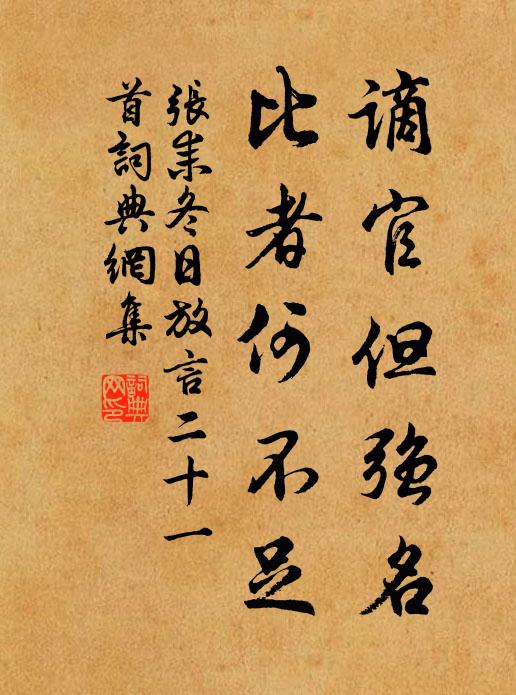 謫官但強名
比者何不足
張耒冬日放言二十一
首詞典網集
詞典
网印